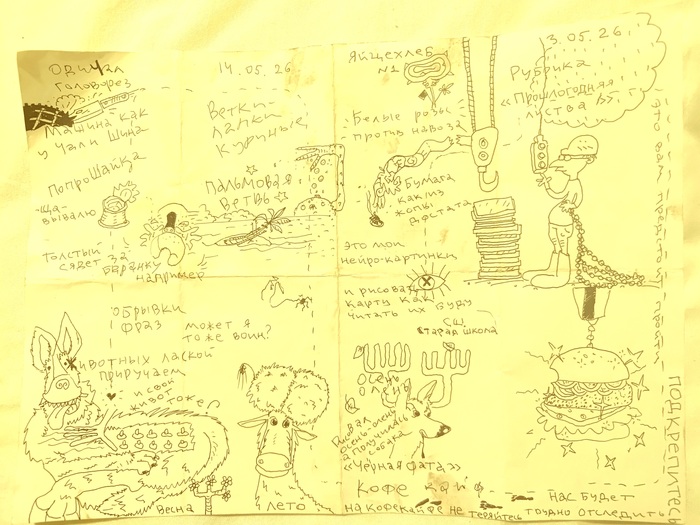 Овичал
головорез
Машина как
у Чали Шина
Попрошайка
-ща-
вывалю
Толстый
сядет за
баранку
например
14.05.26
Ветки-
лапки
куриные
Пальмовая
ветвь
Яйцехлеб
№1
Белые розы
против навоза
Бумага
как из
жопы
достата
это мои
нейро-картинки
и рисовать
карту как
читать их буду
СШ
старая школа
3.05.26
Рубрика
«Прошлогодняя
листва»
это вам предстоит пройти
Обрывки
фраз
может я
тоже воин?
животных лаской
приручаем
и свой
живот тоже
Весна
Лето
Осень
олень
Рисовал
олень очень
получилась
собака
«Чёрная фата»
Кофе кайф
на кофекайфе не теряйтесь
нас будет
трудно отследить
подкрепитесь